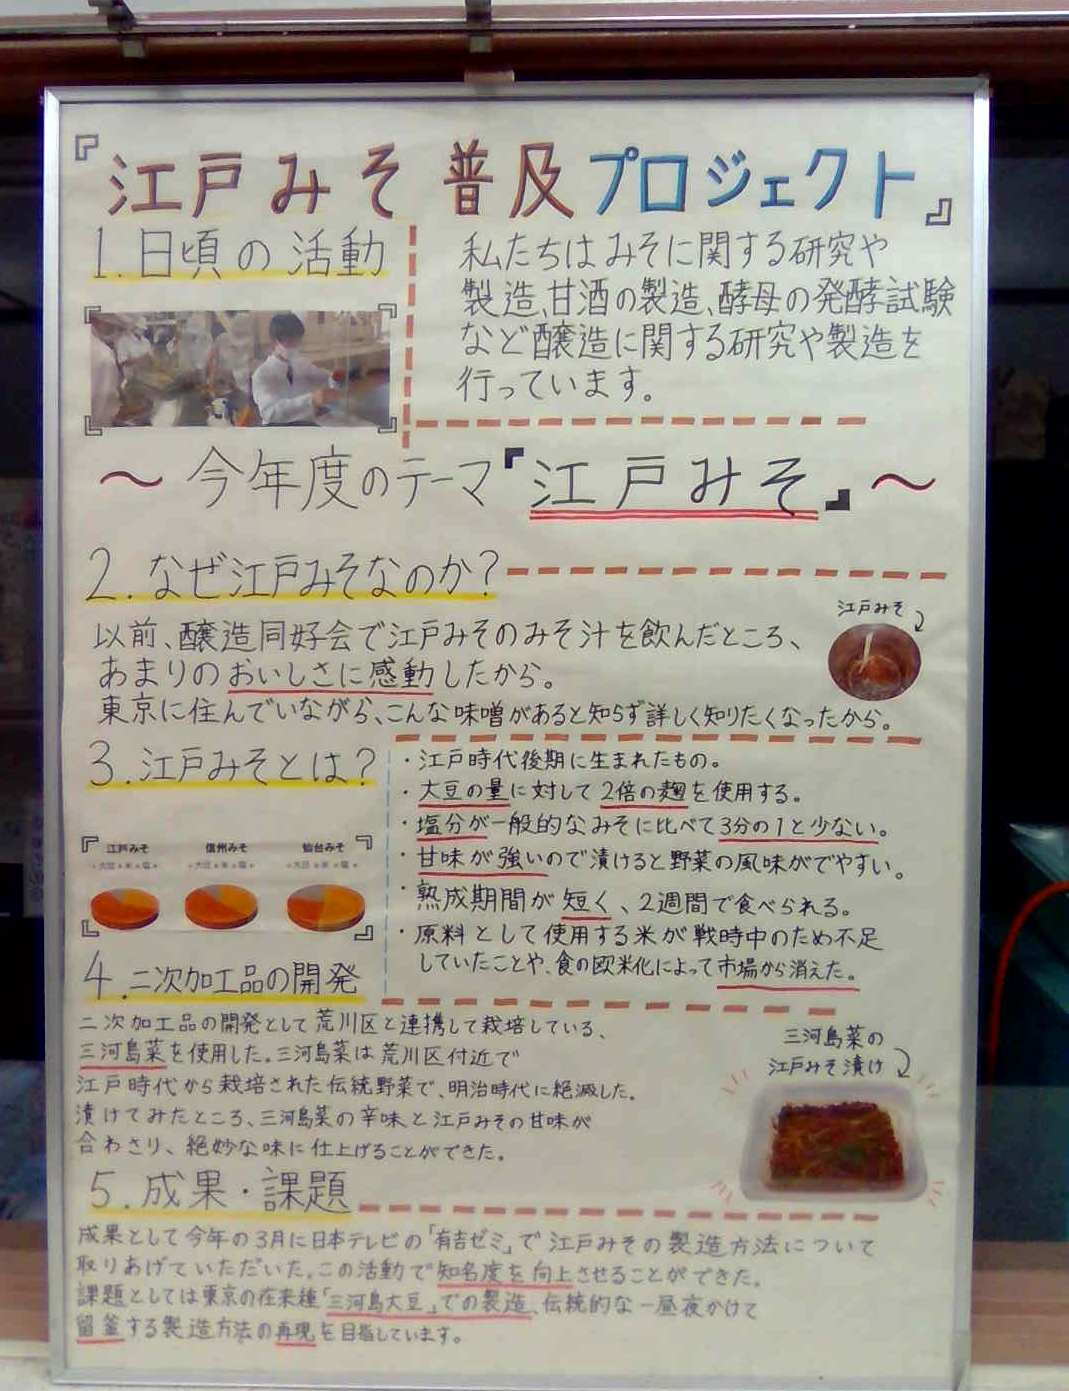 『江戸みそ普及プロジェクト』
1.日頃の活動
私たちはみそに関する研究や
製造、甘酒の製造、酵母の発酵試験
など醸造に関する研究や製造を
行っています。
～今年度のテーマ『江戸みそ』～
2.なぜ江戸みそなのか?
以前、醸造同好会で江戸みそのみそ汁を飲んだところ、
あまりのおいしさに感動したから。
東京に住んでいながら、こんな味噌があると知らず詳しく知りたくなったから。
江戸みそ
3.江戸みそとは?
・江戸時代後期に生まれたもの。
・大豆の量に対して2倍の麹を使用する。
・塩分が一般的なみそに比べて3分の1と少ない。
・甘味が強いので漬けると野菜の風味がでやすい。
・熟成期間が短く、2週間で食べられる。
・原料として使用する米が戦時中のため不足
していたことや、食の欧米化によって市場から消えた。
江戸みそ 信州みそ 仙台みそ
大豆 米 塩 大豆 米 塩 大豆 米 塩
4.二次加工品の開発
二次加工品の開発として荒川区と連携して栽培している、
三河島菜を使用した。三河島菜は荒川区付近で
江戸時代から栽培された伝統野菜で、明治時代に絶滅した。
漬けてみたところ、三河島菜の辛味と江戸みその甘味が
合わさり、絶妙な味に仕上げることができた。
三河島菜の
江戸みそ漬け
5.成果・課題
成果として今年の3月に日本テレビの「有吉ゼミ」で江戸みその製造方法について
取りあげていただいた。この活動で知名度を向上させることができた。
課題としては東京の在来種「三河島大豆」での製造、伝統的な一昼夜かけて
留釜する製造方法の再現を目指しています。